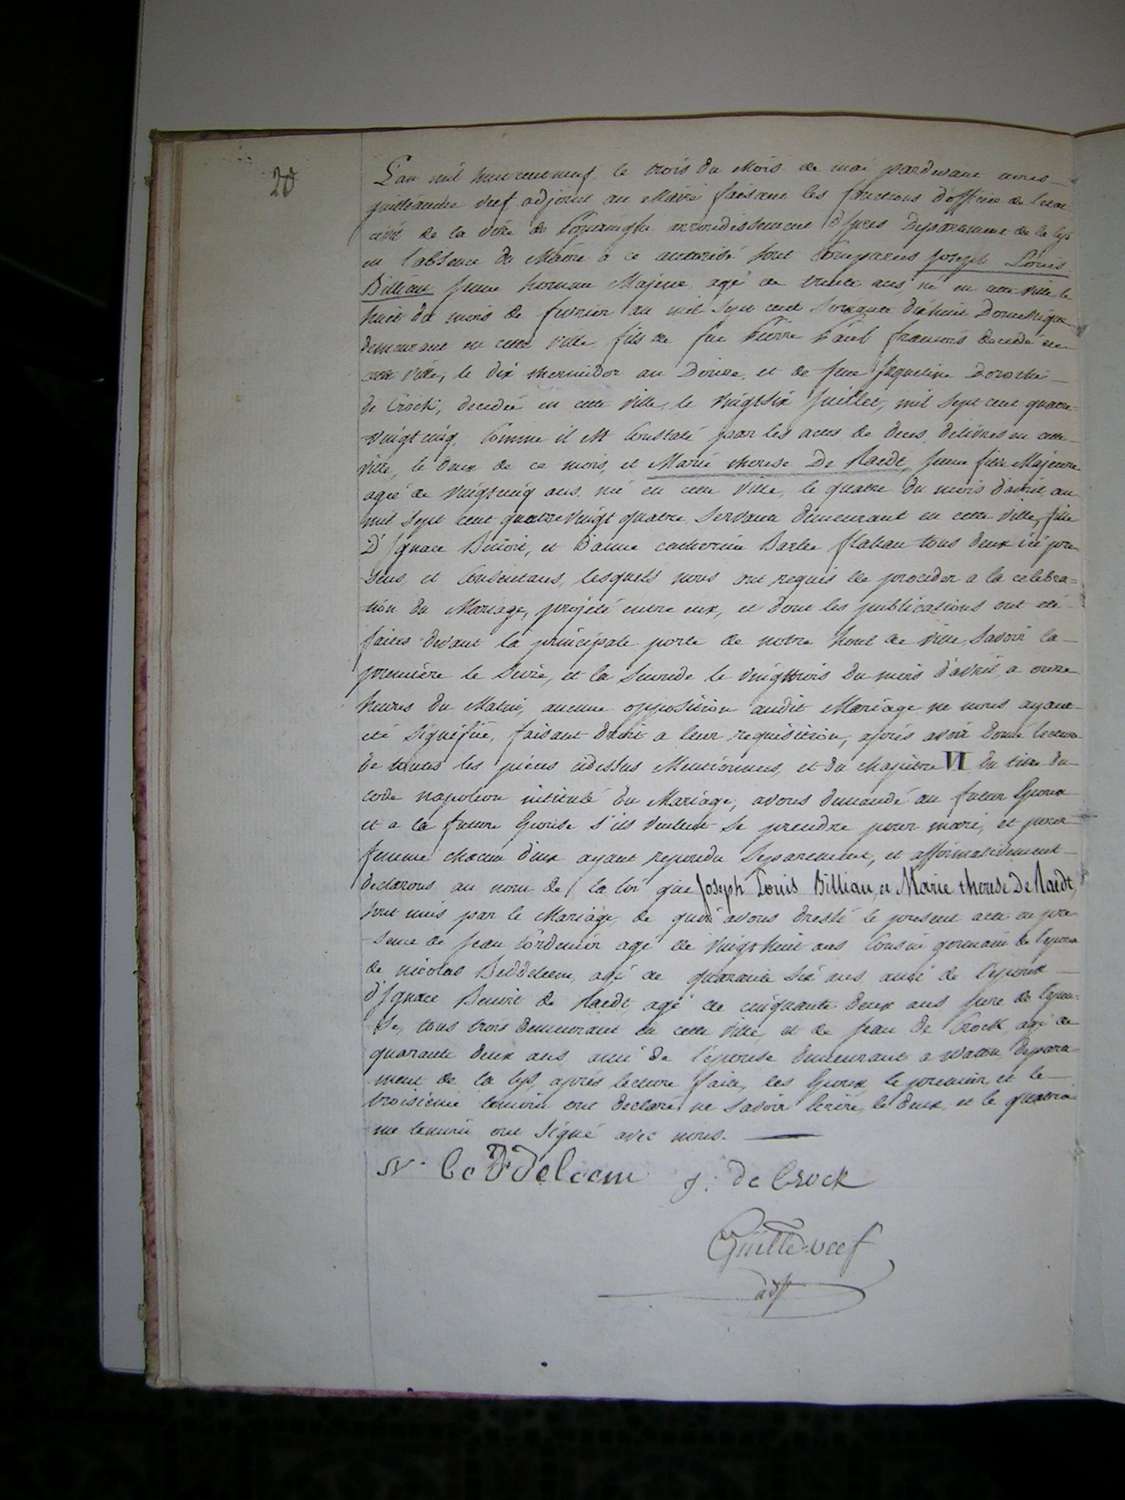 20
L'an mil huit cent neuf, le trois du Mois de mai pardevant nous
guilleaume veef adjoint au Maire faisant les fonctions d'officier de l'etat
civil de la ville de Poperinghe arrondissement d'Ypres Departement de la Lys
en l'absence du Maire a ce autorisé sont Comparus Joseph Louis
Billiau Jeune homme Majeur agé de trente ans né en cette ville le
huit du mois de fevrier an mil sept cent Soixante dixhuit Domestique
demeurant en cette ville fils de feu Pierre Paul francois decedé en
cette ville, le dix thermidor an Douze, et de feue Jaqueline Dorothé
de Crock, decedée en cette ville, le vingtsix Juillet, mil sept cent quatre
vingt cinq Comme il est Constaté par les actes de deces delivrés en cette
ville, le deux de ce mois, et Marie therese De Raedt, Jeune fille Majeure
agée de vingtcinq ans, né en cette ville, le quatre du mois d'avril an
mil sept cent quatrevingt quatre, Servante demeurant en cette ville, fille
D'Ignace Benoit, et D'anne catherine Barbe flahau tous deux ici pre
sens et Consentans, lesquels nous ont requis de proceder a la celebra=
tion du Mariage, projeté entre eux, et dont les publications ont eté
faites devant la principale porte de notre hotel de ville, Savoir la
premiere le Seize, et la Seconde le vingttrois du mois d'avril a onze
heures du Matin, aucune opposition audit Mariage ne nous ayant
eté Signifiée, faisant droit a leur requisition, aprés avoir donné lecture
de toutes les pieces cidessus Mentionnees, et du Chapitre VI du titre du
code napoleon intitulé du Mariage, avons demandé au futur Epoux
et a la future Epouse s'ils veulent se prendre pour mari, et pour
femme chacun d'eux ayant repondu Separement, et affirmativement
declarons au nom de la loi que Joseph Louis Billiau, et Marie therese De Raedt,
sont unis par le Mariage, de quoi avons dressé le present acte en pre
sence de Jean agé de vingthuit ans Cousin germain de l'epoux
de nicolas Beddeleem, agé de quarante six ans ami de l'epoux
d'Ignace Benoit de Raedt, agé de cinquante deux ans pere de l'epou=
se, tous trois demeurant en cette ville, et de Jean de Crock, agé de
quarante deux ans ami de l'épouse demeurant a watou departe
ment de la lys, aprés lecture faite, les Epoux le premier et le
troisieme temoin ont declaré ne savoir ecrire, le deux, et le quatrie
me temoin ont signé avec nous.
N. Beddeleem J: de Crock
Guille veef
adjt